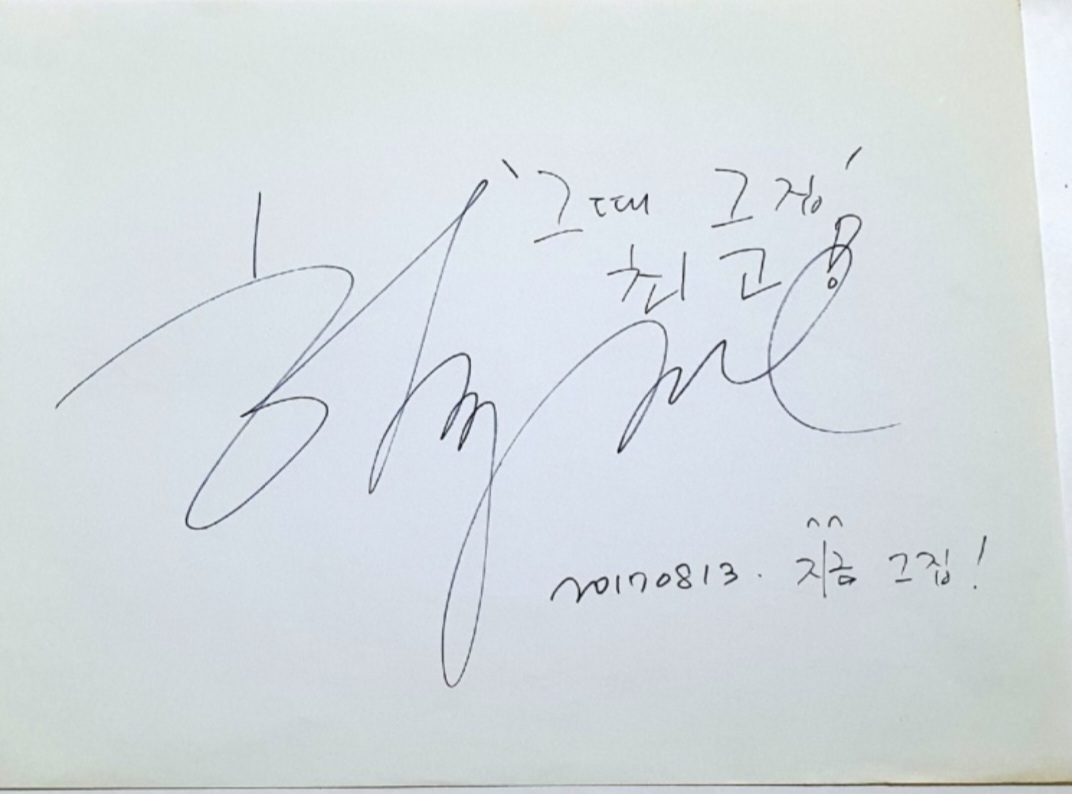 '그때 그집'
최고!
^^
20170813. 지금 그집!